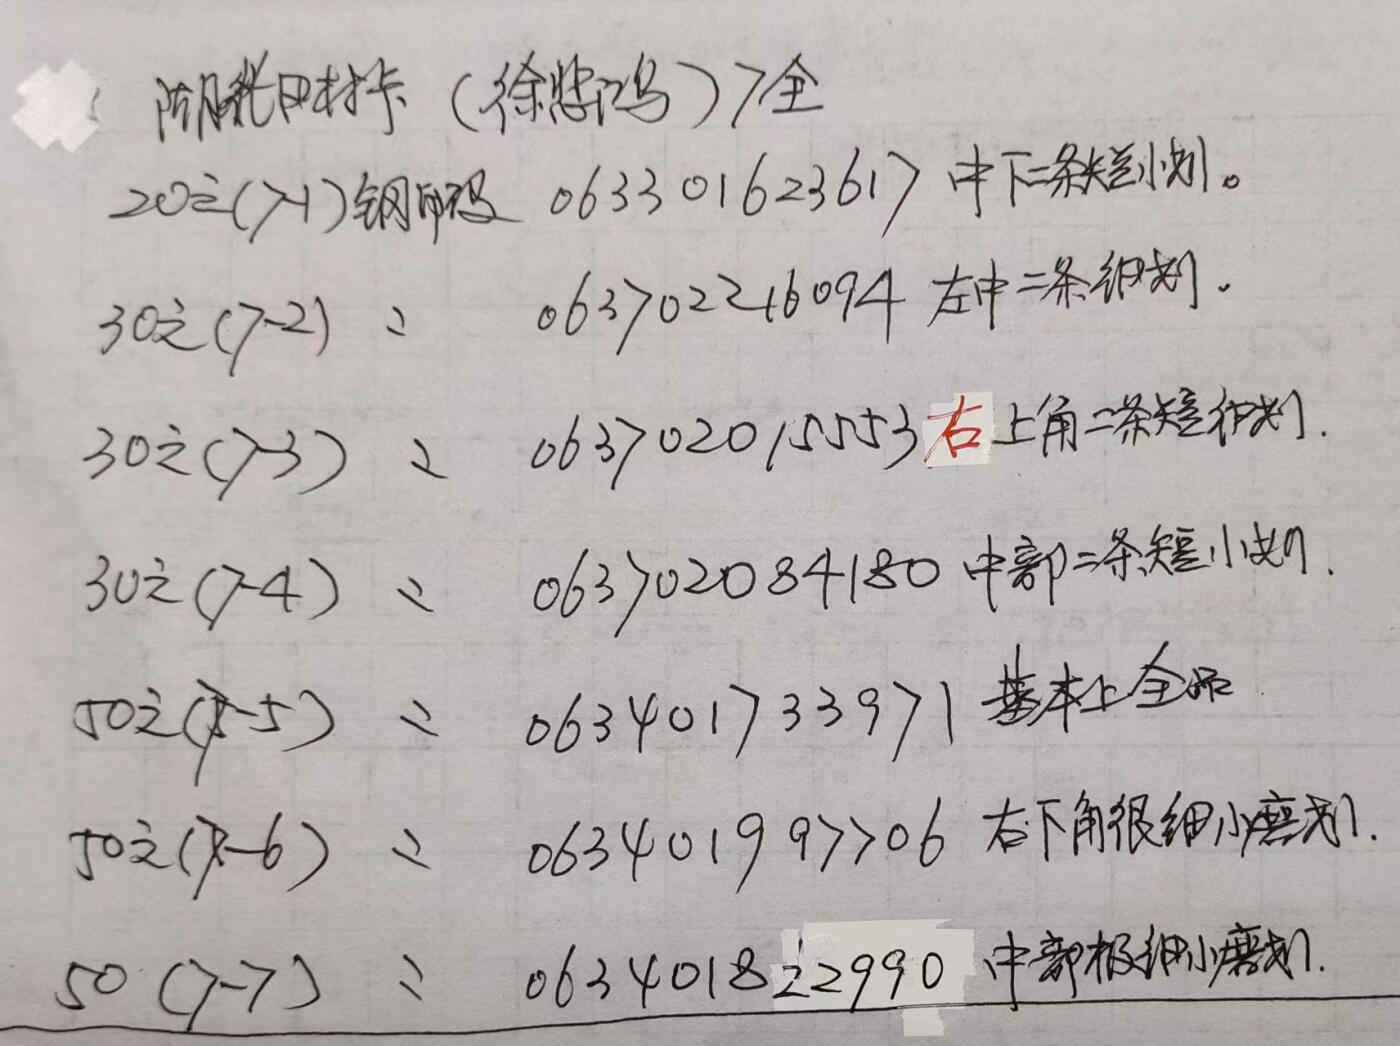 田村卡（徐悲鸿）7全
20元(7-1)钢印码 063301623617 中下二条短小划。
30元(7-2) 〃 063702216094 左中二条细划.
30元(7-3) 〃 063702015553 右上角二条短细划.
30元(7-4) 〃 063702084180 中部二条短小划.
50元(7-5) 〃 063401733971 基本上全品
50元(7-6) 〃 063401997706 右下角很细小磨划.
50 (7-7) 〃 063401822990 中部极细小磨划.